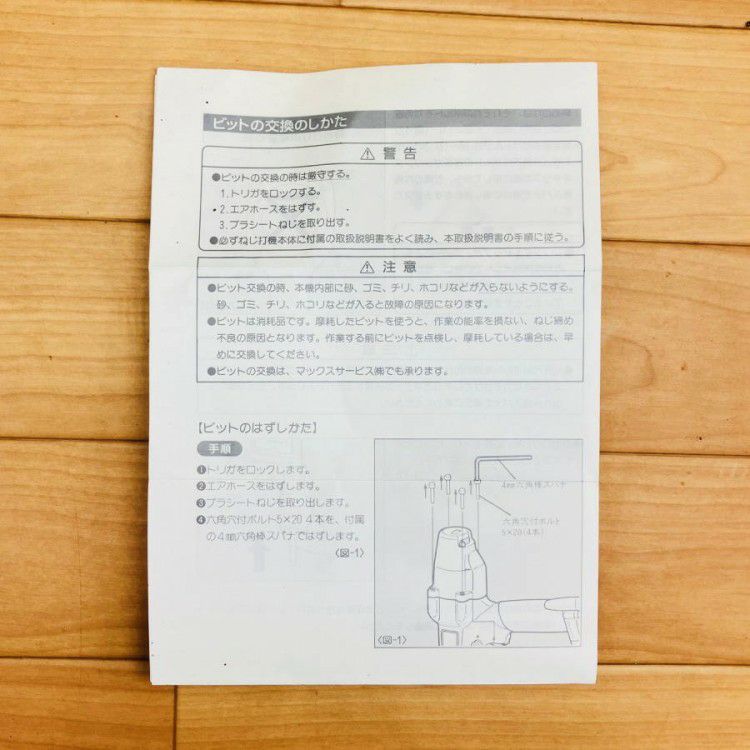 ビットの交換のしかた
⚠ 警告
●ビットの交換の時は厳守する。
1.トリガをロックする。
2.エアホースをはずす。
3.プラシートねじを取り出す。
●必ずねじ打機本体に付属の取扱説明書をよく読み、本取扱説明書の手順に従う。
⚠ 注意
●ビット交換の時、本機内部に砂、ゴミ、チリ、ホコリなどが入らないようにする。
砂、ゴミ、チリ、ホコリなどが入ると故障の原因になります。
●ビットは消耗品です。摩耗したビットを使うと、作業の能率を損ない、ねじ締め
不良の原因となります。作業する前にビットを点検し、摩耗している場合は、早
めに交換してください。
●ビットの交換は、マックスサービス㈱でも承ります。
【ビットのはずしかた】
手順
❶トリガをロックします。
❷エアホースをはずします。
❸プラシートねじを取り出します。
❹六角穴付ボルト5×20 4本を、付属
の4㎜六角棒スパナではずします。
〈図-1〉
4㎜六角棒スパナ
六角穴付ボルト
5×20(4本)
〈図-1〉